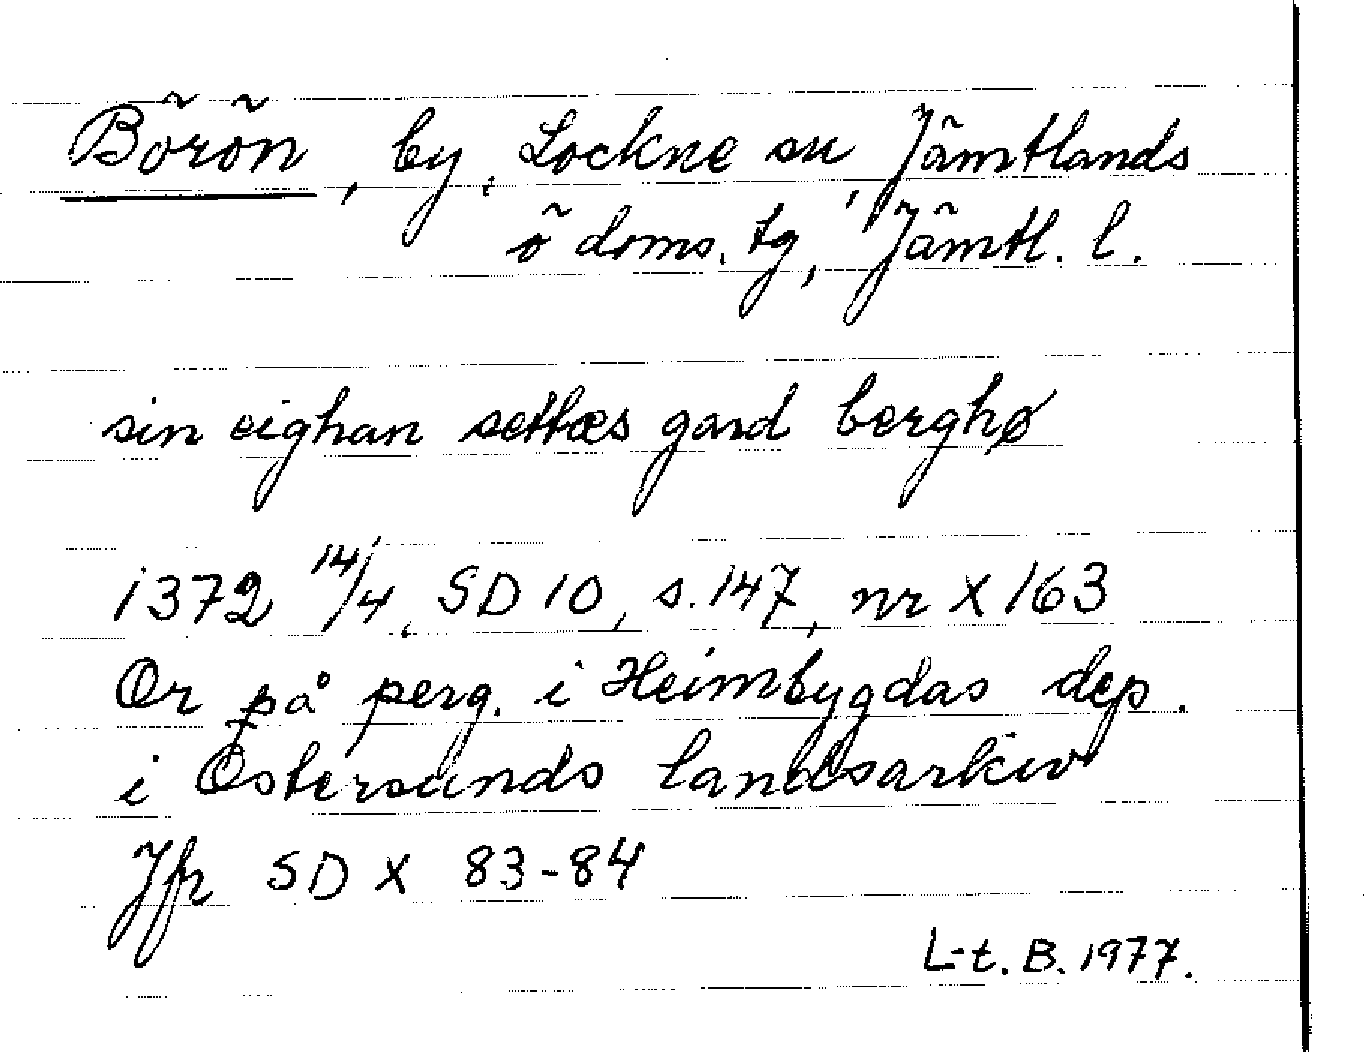 Börön, by, Lockne sn, Jämtlands
ö doms. tg, Jämtl. l.
sin eighan settæs gard berghø
1372 14/4, SD 10, s. 147, nr X 163
Or på perg. i Heimbygdas dep.
i Östersunds landsarkiv
Jfr SD X 83-84
L-t. B. 1977.